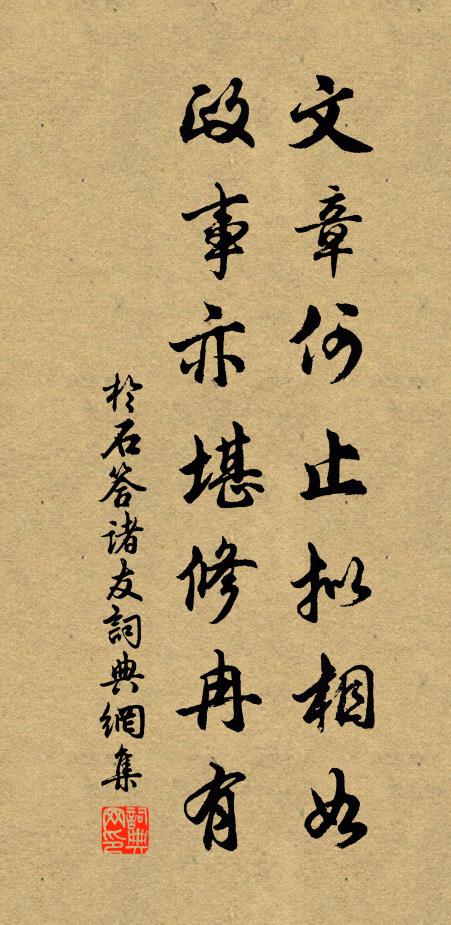 文章何止拟相如
政事亦堪修冉有
於石答诸友詞典網集
詞典网印